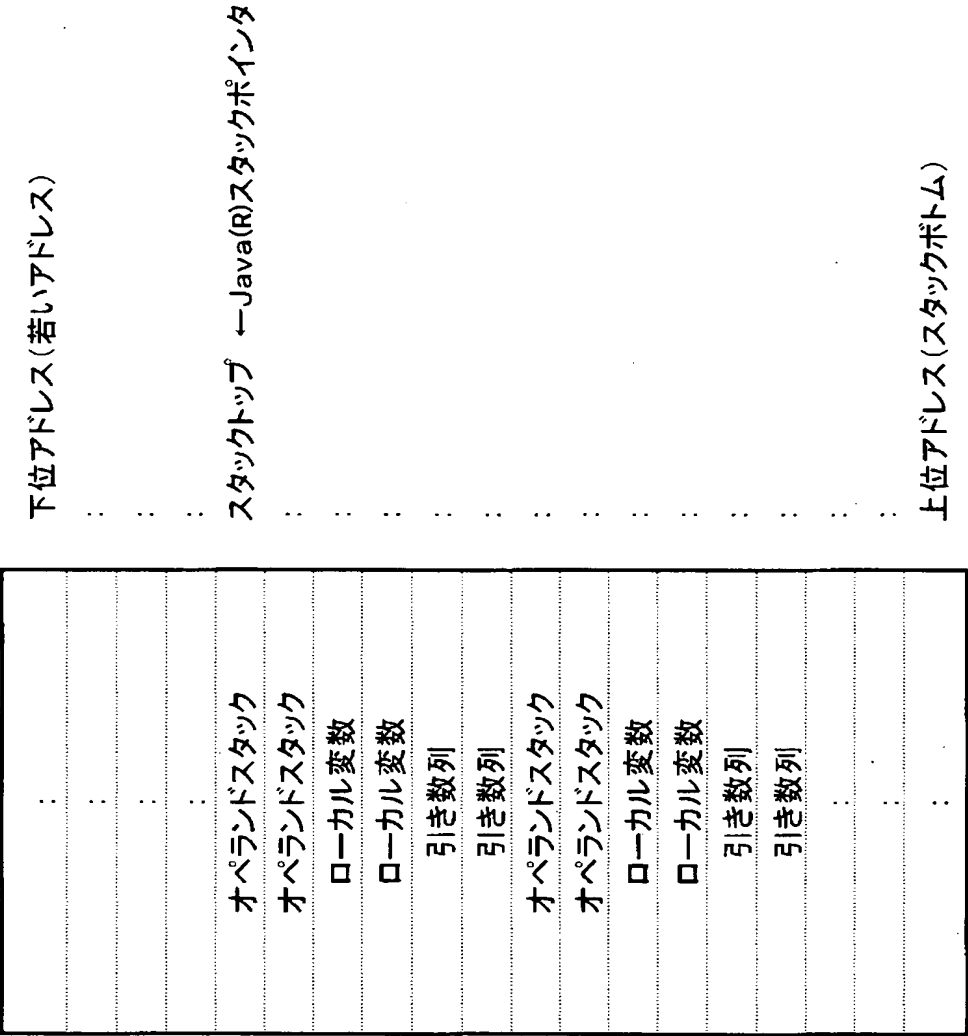 : 下位アドレス(若いアドレス)
: :
: :
: :
オペランドスタック スタックトップ ←Java(R)スタックポインタ
オペランドスタック :
ローカル変数 :
ローカル変数 :
引き数列 :
引き数列 :
オペランドスタック :
オペランドスタック :
ローカル変数 :
ローカル変数 :
引き数列 :
引き数列 :
: :
: :
: 上位アドレス(スタックボトム)